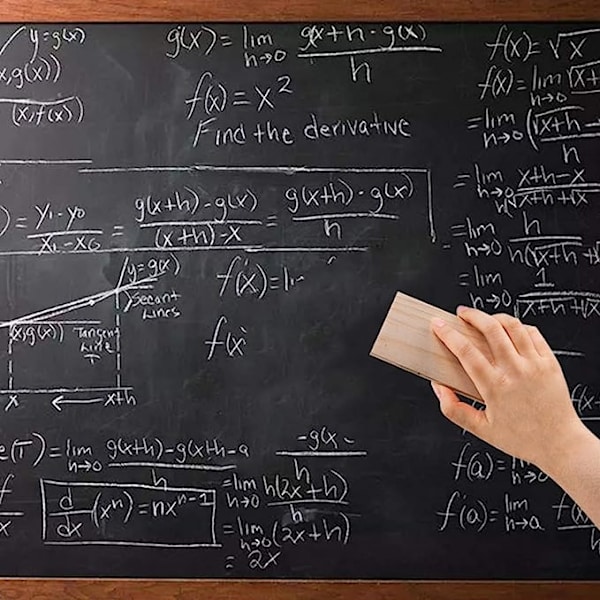 y=g(x)
x,g(x))
(x,f(x))
g'(x) = lim h→0 gx+h-g(x) / h
f(x) = x²
Find the derivative
f(x) = √x
f(x) = lim h→0 √x+
= lim h→0 (√x+h - / h
= lim h→0 x+h-x / h(√x+h+√x
= lim h→0 h / h(√x+h+√
= lim h→0 1 / √x+h+√x
) = y₁-y₀ / x₁-x₀ = g(x+h)-g(x) / (x+h)-x = g(x+h)-g(x) / h
y=g(x)
Secant
Lines
(x,g(x))
Tangent
Line
T
x ← x+h
f'(x) = li
f(x
e(T) = lim h→0 g(x+h)-g(x+h-a / h
-g(x- / h
d/dx (xⁿ) = nxⁿ⁻¹
= lim h→0 h(2x+h) / h
= lim h→0 (2x+h)
= 2x
f(a) =
f'(a) = lim h→a f(x)